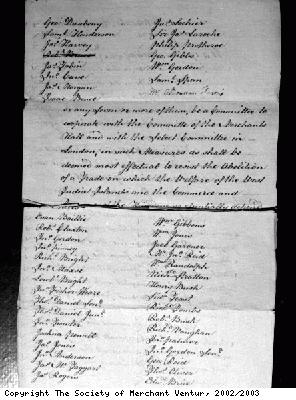 Geo: Daubeny
Saml Henderson
Jas Harvey
Jas Tobin
Jno Cave
Jas Morgan
Isaac
Jas Lockier
Sir Jas Laroche
Philip Protheroe
Geo: Gibbs
Wm Gordon
Saml Span
Mr
or any seven or more of them, be a Committee to
cooperate with the Committee of the Merchants
Hall and with the Select Committee in
London, in such Measures as shall be
deemed most effectual to resist the Abolition
of a Trade on which the Welfare of the West
India Islands and the Commerce and
Evan Baillie
Robt Claxton
Jno Gordon
Jno Pinney
Richd Bright
Jno Maxse
Lowbt Bright
Jno Fisher Weare
Thos Daniel Senr
Thos Daniel Junr
Jno Hunter
Jas Jones
Jno Anderson
Jas McTaggart
Jas Rogers
Wm Gibbons
Wm Jones
Joel Gardiner
Wm Jas Reid
Wm Randolph
Henry Bush
Robt Bush
Richd Vaughan
Jno Gordon Senr
Geo: Reid
Copyright The Society of Merchant Ventur, 2002/2003